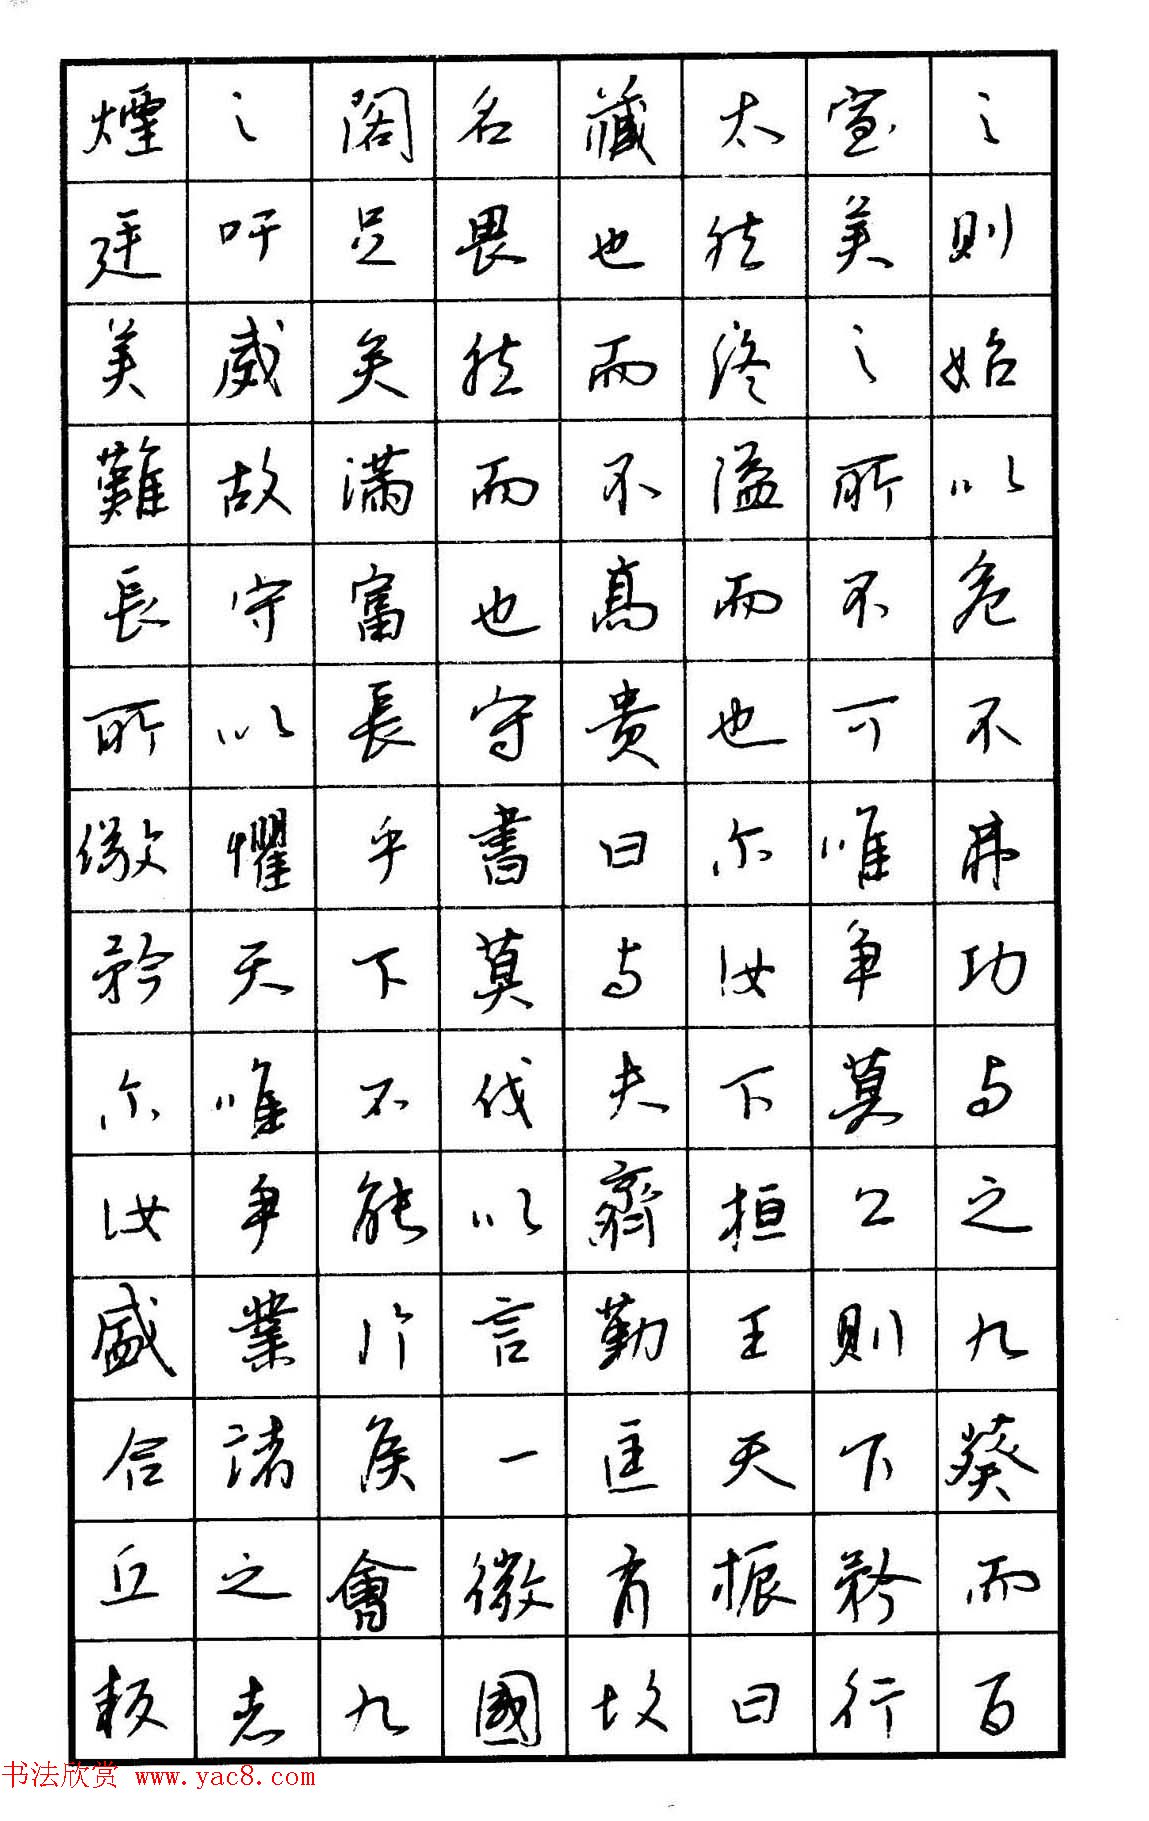 煙之閣名藏太宣之
廷吁足畏也然美則
美威矣然而終之始
難故满而不溢所以
長守富也高而不危
所以長守貴也可不
儆懼乎書曰尔唯弗
矜天下莫与汝争功
尔唯不伐夫下莫与
汝争能以齊桓公之
盛業片言勤王則九
合諸侯一匡天下葵
丘之會微有振矜而
叛者九國故曰行百
书法欣赏 www.yac8.com